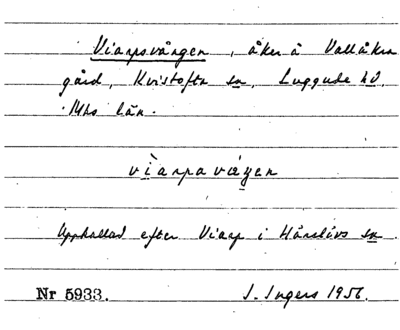 Viarpsvången, åker å Vallåkra
gård, Kvistofta sn, Luggude hd,
Mhs län.
vìarpavæŋen
Uppkallad efter Viarp i Härslövs sn.
Nr 5933. I. Ingers 1956.